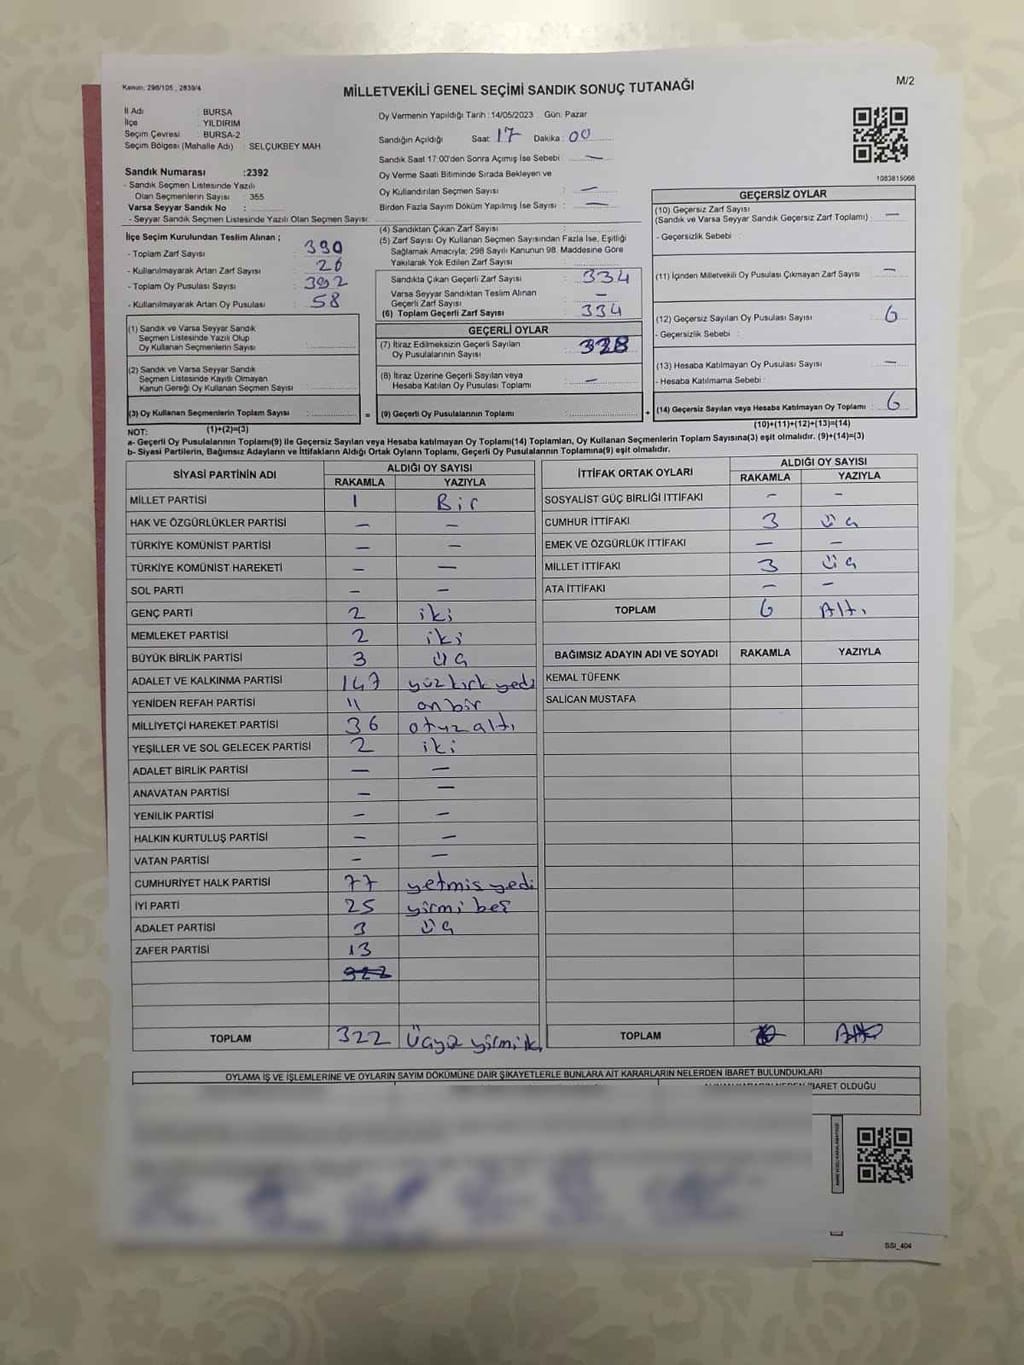 Kanun: 298/105 , 2839/4
M/2
MİLLETVEKİLİ GENEL SEÇİMİ SANDIK SONUÇ TUTANAĞI
İl Adı : BURSA
İlçe : YILDIRIM
Seçim Çevresi : BURSA-2
Seçim Bölgesi (Mahalle Adı) : SELÇUKBEY MAH
Oy Vermenin Yapıldığı Tarih : 14/05/2023 Gün: Pazar
Sandığın Açıldığı Saat: 17 Dakika : 00
Sandık Saat 17:00'den Sonra Açımış İse Sebebi : —
Oy Verme Saati Bitiminde Sırada Bekleyen ve
Oy Kullandırılan Seçmen Sayısı : —
Birden Fazla Sayım Döküm Yapılmış İse Sayısı : —
1083815066
Sandık Numarası :2392
- Sandık Seçmen Listesinde Yazılı
Olan Seçmenlerin Sayısı : 355
Varsa Seyyar Sandık No :
- Seyyar Sandık Seçmen Listesinde Yazılı Olan Seçmen Sayısı:
İlçe Seçim Kurulundan Teslim Alınan ;
- Toplam Zarf Sayısı : 390
- Kullanılmayarak Artan Zarf Sayısı : 26
- Toplam Oy Pusulası Sayısı : 392
- Kullanılmayarak Artan Oy Pusulası : 58
(1) Sandık ve Varsa Seyyar Sandık
Seçmen Listesinde Yazılı Olup
Oy Kullanan Seçmenlerin Sayısı :
(2) Sandık ve Varsa Seyyar Sandık
Seçmen Listesinde Kayıtlı Olmayan
Kanun Gereği Oy Kullanan Seçmen Sayısı :
(3) Oy Kullanan Seçmenlerin Toplam Sayısı :
(1)+(2)=(3)
(4) Sandıktan Çıkan Zarf Sayısı :
(5) Zarf Sayısı Oy Kullanan Seçmen Sayısından Fazla İse, Eşitliği
Sağlamak Amacıyla; 298 Sayılı Kanunun 98. Maddesine Göre
Yakılarak Yok Edilen Zarf Sayısı :
Sandıkta Çıkan Geçerli Zarf Sayısı : 334
Varsa Seyyar Sandıktan Teslim Alınan
Geçerli Zarf Sayısı : —
(6) Toplam Geçerli Zarf Sayısı : 334
GEÇERLİ OYLAR
(7) İtiraz Edilmeksizin Geçerli Sayılan
Oy Pusulalarının Sayısı : 328
(8) İtiraz Üzerine Geçerli Sayılan veya
Hesaba Katılan Oy Pusulası Toplamı : —
= (9) Geçerli Oy Pusulalarının Toplamı : +
GEÇERSİZ OYLAR
(10) Geçersiz Zarf Sayısı
(Sandık ve Varsa Seyyar Sandık Geçersiz Zarf Toplamı) : —
- Geçersizlik Sebebi :
(11) İçinden Milletvekili Oy Pusulası Çıkmayan Zarf Sayısı : —
(12) Geçersiz Sayılan Oy Pusulası Sayısı : 6
- Geçersizlik Sebebi :
(13) Hesaba Katılmayan Oy Pusulası Sayısı : —
- Hesaba Katılmama Sebebi :
(14) Geçersiz Sayılan veya Hesaba Katılmayan Oy Toplamı : 6
(10)+(11)+(12)+(13)=(14)
NOT:
a- Geçerli Oy Pusulalarının Toplamı(9) ile Geçersiz Sayılan veya Hesaba katılmayan Oy Toplamı(14) Toplamları, Oy Kullanan Seçmenlerin Toplam Sayısına(3) eşit olmalıdır. (9)+(14)=(3)
b- Siyasi Partilerin, Bağımsız Adayların ve İttifakların Aldığı Ortak Oyların Toplamı, Geçerli Oy Pusulalarının Toplamına(9) eşit olmalıdır.
SİYASİ PARTİNİN ADI ALDIĞI OY SAYISI
RAKAMLA YAZIYLA
MİLLET PARTİSİ 1 Bir
HAK VE ÖZGÜRLÜKLER PARTİSİ — —
TÜRKİYE KOMÜNİST PARTİSİ — —
TÜRKİYE KOMÜNİST HAREKETİ — —
SOL PARTİ — —
GENÇ PARTİ 2 iki
MEMLEKET PARTİSİ 2 iki
BÜYÜK BİRLİK PARTİSİ 3 üç
ADALET VE KALKINMA PARTİSİ 147 yüzkırkyedi
YENİDEN REFAH PARTİSİ 11 onbir
MİLLİYETÇİ HAREKET PARTİSİ 36 otuzaltı
YEŞİLLER VE SOL GELECEK PARTİSİ 2 iki
ADALET BİRLİK PARTİSİ — —
ANAVATAN PARTİSİ — —
YENİLİK PARTİSİ — —
HALKIN KURTULUŞ PARTİSİ — —
VATAN PARTİSİ — —
CUMHURİYET HALK PARTİSİ 77 yetmiş yedi
İYİ PARTİ 25 yirmi beş
ADALET PARTİSİ 3 üç
ZAFER PARTİSİ 13
322
TOPLAM 322 Üçyüz yirmiik
İTTİFAK ORTAK OYLARI ALDIĞI OY SAYISI
RAKAMLA YAZIYLA
SOSYALİST GÜÇ BİRLİĞİ İTTİFAKI — —
CUMHUR İTTİFAKI 3 üç
EMEK VE ÖZGÜRLÜK İTTİFAKI — —
MİLLET İTTİFAKI 3 üç
ATA İTTİFAKI — —
TOPLAM 6 Altı
BAĞIMSIZ ADAYIN ADI VE SOYADI RAKAMLA YAZIYLA
KEMAL TÜFENK
SALİCAN MUSTAFA
TOPLAM
OYLAMA İŞ VE İŞLEMLERİNE VE OYLARIN SAYIM DÖKÜMÜNE DAİR ŞİKAYETLERLE BUNLARA AİT KARARLARIN NELERDEN İBARET BULUNDUKLARI
İBARET OLDUĞU
SSİ_404